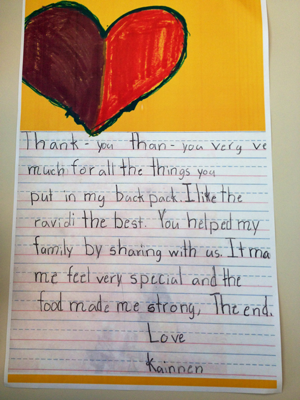 Thank-you than-you very ve
much for all the things you
put in my back pack. I like the
ravidi the best. You helped my
family by sharing with us. It ma
me feel very special and the
food made me strong, The end.
Love
Kainnen